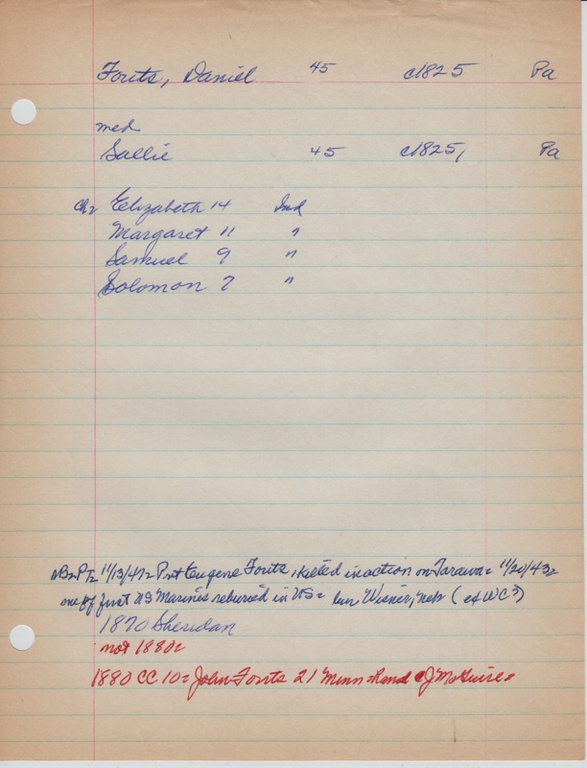 Fouts, Daniel 45 c1825 Pa
med
Sallie 45 c1825, Pa
Ch= Elizabeth 14 Ind
Margaret 11 "
Samuel 9 "
Solomon 7 "
11/13/47= Pvt Eugene Fouts, killed in action on Tarawa= 11/20/43=
one of first US Marines reburied in US= bur Wisner, Neb (
1870 Sheridan
not 1880=
1880 CC 10= John Fouts 21 Minn =Rand CJ McGuire=